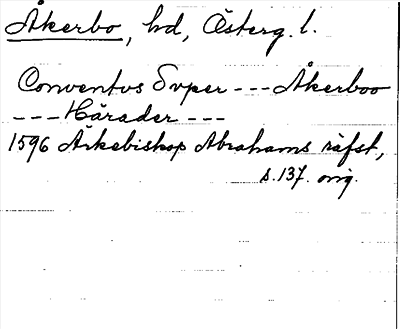 Åkerbo, hd, Österg. l.
Conventus Super --- Åkerboo
--- Härader ---
1596 Ärkebiskop Abrahams räfst,
s. 137. orig.